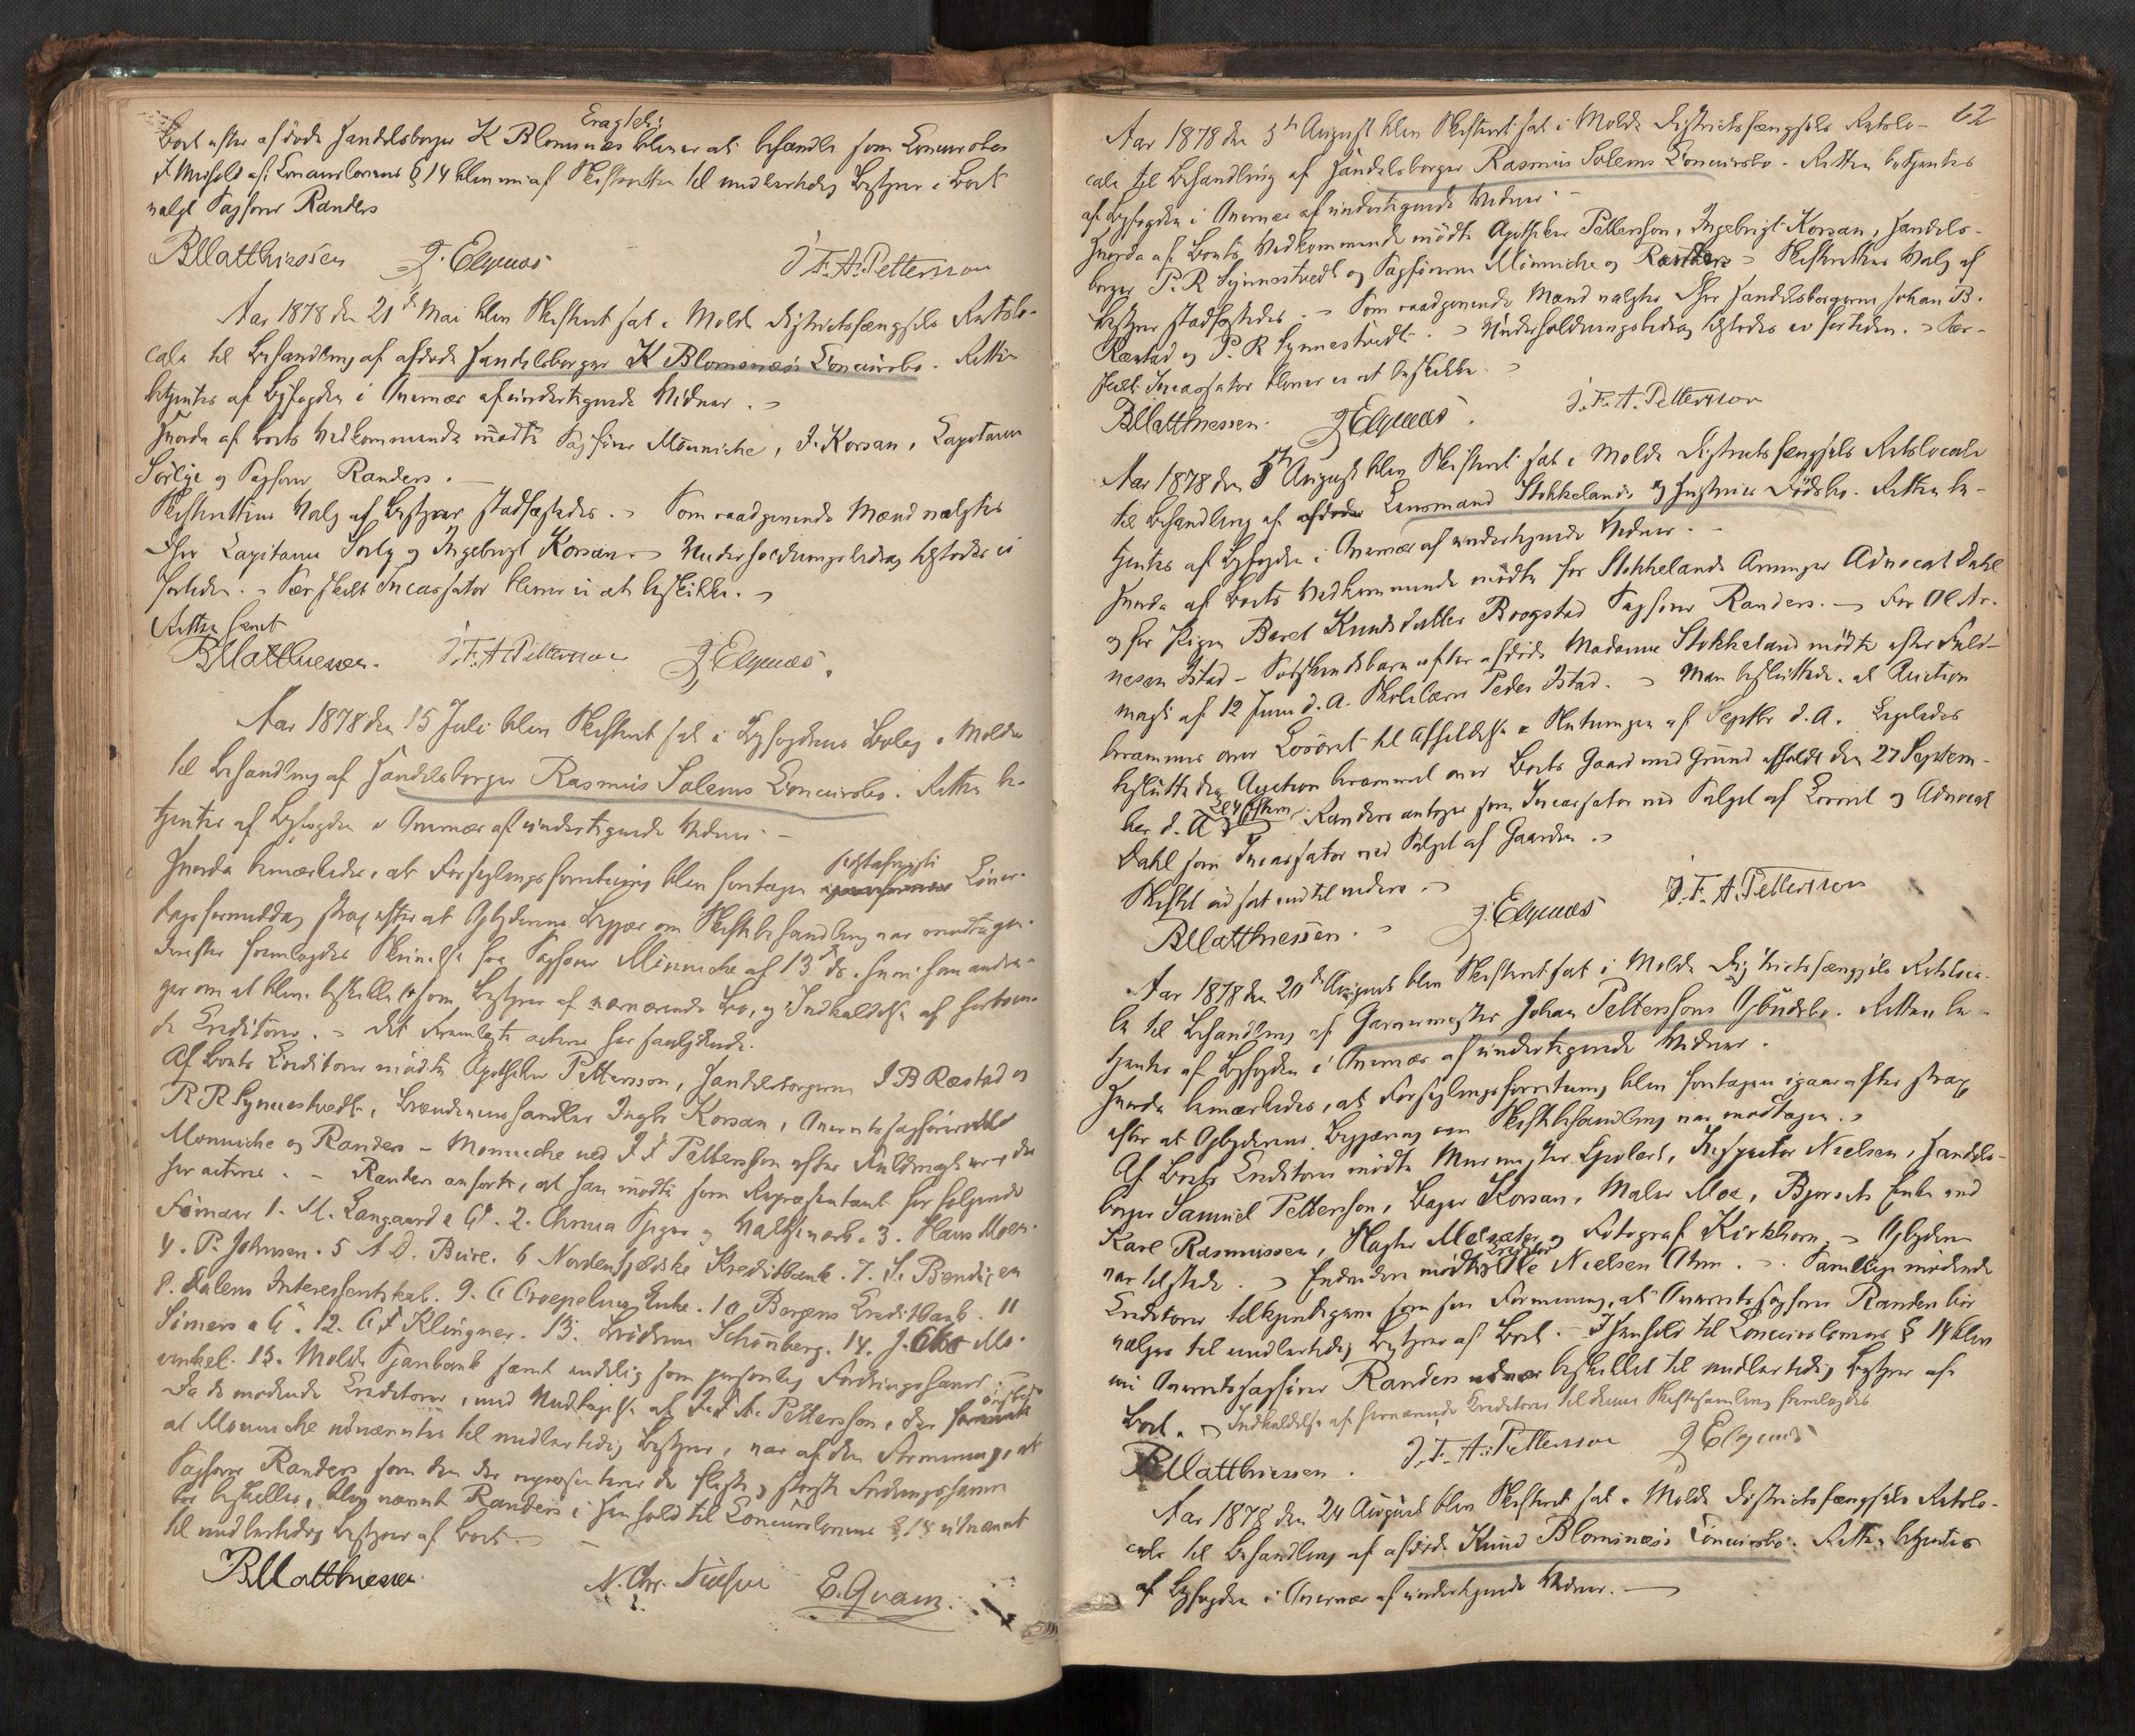 Eragtet:
Boet efter afdøde Handelsborger K Blomsnæs bliver at behandle som Concursbo
I Henhold af Concurslovens § 14 blev nu af Skifteretten til midlertidig Bestyrer i Boet
valgt Sagfører Randers
BMatthiessen J. Elgenæs J. F. A. Pettersson
Aar 1878 den 21de Mai blev Skifteret sat i Molde Distriktsfængsels Retslo-
cale til Behandling af afdøde Handelsborger K Blomsnæs's Concursbo. Retten
betjentes af Byfogden i Overvær af undertegnede Vidner. -
Hvorda af Boets Vedkommende mødte Sagfører Münniche, I. Korsan, Capitain
Sørlye og Sagfører Randers. -
Skifterettens Valg af Bestyrer stadfæstedes. - Som raadgivende Mænd valgtes
Hrr Capitain Sørly og Ingebrigt Korsan. - Underholdningsbidrag tilstodes ei
for tiden. - Særskilt Incassator bliver ei at beskikke. -
Retten hævet
BMatthiessen. J. F. A. Pettersson J Elgenæs.
Aar 1878 den 15 Juli blev Skifteret sat i Byfogdens Bolig i Molde
til Behandling af Handelsborger Rasmus Solems Concursbo. Retten be-
tjentes af Byfogden i Overvær af undertegnede Vidner. -
Hvorda bemærkedes, at Forseglingsforretning blev foretagen sidstafvigte Løver-
dags formiddag strax efter at Opbyderens Begjær om Skiftebehandling var modtagen.
Derefter fremlagdes Skrivelse fra Sagfører Münniche af 13de ds. hvori han andra-
ger om at blive beskikket som Bestyrer af nærværende Bo, og Indkaldelse af herboen-
de Creditorer. - Det Fremlagte acteres her saalydende.
Af Boets Creditorer mødte Apotheker Pettersson, Handelsborgerne I B Røstad og
P R Synnestvedt, Brændevinshandler Ingbr Korsan, Overretssagførerne
Münniche og Randers - Münniche ved I F Pettersson efter Fuldmagt som
her acteres. - Randers anførte, at han mødte som Repræsentant for følgende
Firmaer 1. M. Langaard & Co. 2. Chrnia Spiger og Valseværk. 3. Hans Moen.
4. P. Johnsen. 5 A D. Bure. 6 Nordenfjeldske Kreditbank. 7. S. Bendixen
8. Dalens Interessentskab. 9. C Groepelius Enke. 10 Bergens Creditbank. 11
Simers & Co. 12. C F Klingner. 13. Brødrene Schönberg. 14. J. Mo-
winkel. 15. Molde Sparebank samt endelig som personlig Fordringshaver. -
Da de mødende Creditorer, med Undtagelse af I. F A. Pettersson, der ønskede
at Münniche udnævntes til midlertidig Bestyrer, var af den Formening, at
Sagfører Randers som den der repræsenterer de fleste og største Fordringshavere
bør beskikkes, blev nævnte Randers i Henhold til Concurslovens § 14 udnævnt
til midlertidig Bestyrer af Boet. -
BMatthiessen N. Chr. Nielsen E. Qvam.
62
Aar 1878 den 5te August blev Skifteret sat i Molde Distriktsfængsels Retslo-
cale til Behandling af Handelsborger Rasmus Solems Concursbo. Retten betjentes
af Byfogden i Overvær af undertegnede Vidner. -
Hvorda af Boets Vedkommende mødte Apotheker Pettersson, Ingebrigt Korsan, Handels-
borger P. R Synnestvedt og Sagførerne Münniche og Randers - Skifterettens Valg af
Bestyrer stadfæstedes. - Som raadgivende Mænd valgtes Hrr Handelsborgerne Johan B.
Røstad og P. R Synnestvedt. - Underholdningsbidrag tilstodes ei for tiden. - Sær-
skilt Incassator bliver ei at beskikke. -
BMatthiessen. J Elgenæs. J. F. A. Pettersson
Aar 1878 den 5te August blev Skifteret sat i Molde Distriktsfængsels Retslocale
til Behandling af afdøde Lensmand Stokkelands og Hustrues Dødsbo. Retten be-
tjentes af Byfogden i Overvær af undertegnede Vidner. -
Hvorda af Boets Vedkommende mødte for Stokkelands Arvinger Advocat Dahl
og for Pigen Beret Knudsdatter Boogstad Sagfører Randers. - For Ol Ar-
nesen Istad - Søskendebarn efter afdøde Madame Stokkeland mødte efter Fuld-
magt af 12 Juni d. A. Skolelærer Peder Istad. - Man besluttede at Auction
berammes over Løsøret til Afholdelse i Slutningen af Septbr d. A. Ligeledes
besluttedes Auction berammet over Boets Gaard med Grund afholdt den 27 Septem-
ber d. A Kl 4 Efterm. Randers antoges som Incassator ved Salget af Løsøret og Advocat
Dahl som Incassator ved Salget af Gaarden. -
Skiftet udsat indtil videre. -
BMatthiessen. - J. Elgenæs J. F. A. Pettersson
Aar 1878 den 20de August blev Skifteret sat i Molde Distriktsfængsels Retsloca-
le til Behandling af Garvermester Johan Petterssons Opbudsbo. Retten be-
tjentes af Byfogden i Overvær af undertegnede Vidner.
Hvorda bemærkedes, at Forseglingsforretning blev foretagen igaaraftes strax
efter at Opbyderens Begjæring om Skiftebehandling var modtagen. -
Af Boets Creditorer mødte Murmester Gjølert, Inspector Nielsen, Handels-
borger Samuel Pettersson, Bager Korsan, Maler Moe, Bjørseths Enke ved
Karl Rasmussen, Slagter Melsæter og Fotograf Kirkhorn. - Opbyderen
var tilstede. - Endvidere mødte Creditor Ole Nielsen Ohm. -. Samtlige mødende
Creditorer tilkjendegave som sin Formening, at Overretssagfører Randers bør
vælges til midlertidig Bestyrer af Boet. - I Henhold til Concurslovens § 14 blev
nu Overretssagfører Randers beskikket til midlertidig Bestyrer af
Boet. - Indkaldelse af herværende Creditorer til denne Skiftesamling fremlagdes
BMatthiessen. J. F. A. Pettersson J Elgenæs
Aar 1878 den 24 August blev Skifteret sat i Molde Distriktsfængsels Retslo-
cale til Behandling af afdøde Knud Blomsnæs's Concursbo. Retten betjentes
af Byfogden i Overvær af undertegnede Vidner. -